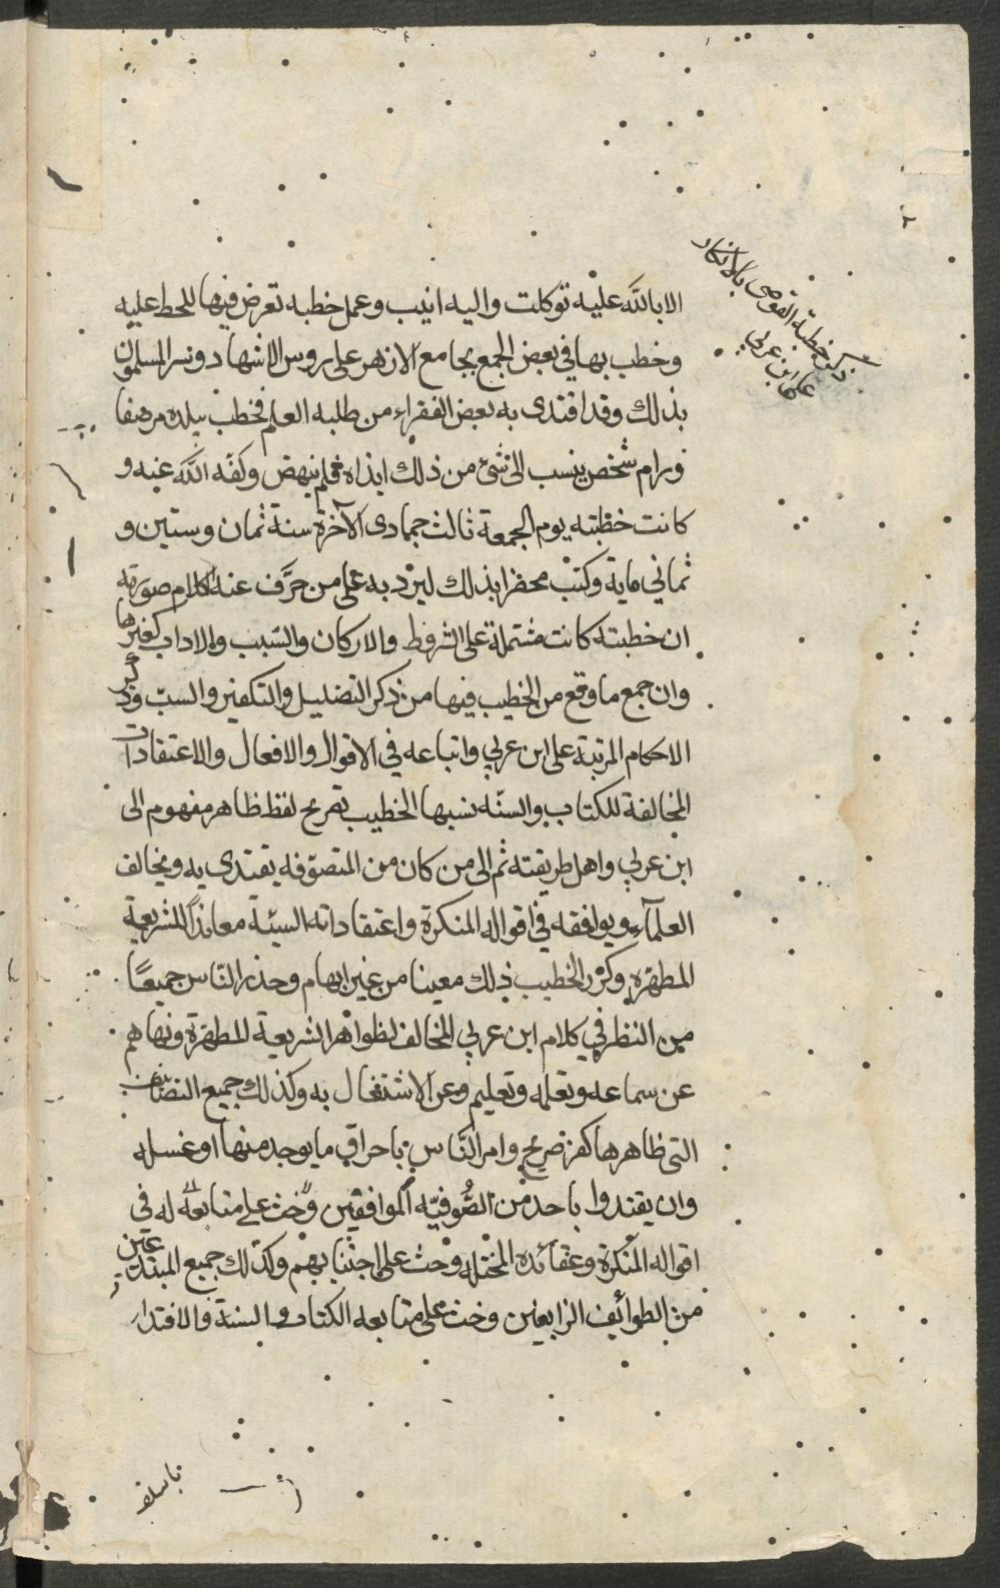 ذكر خطبة القوصى بالانكار
على ابن عربي
الا بالله عليه توكلت واليه انيب وعمل خطبه تعرض فيها للحط عليه
وخطب بها في بعض الجمع بجامع الازهر على روس الاشهاد وسر المسلمون
بذلك وقد اقتدى به بعض الفقراء من طلبه العلم فخطب ببلده مرصفا
ورام شخص ينسب الى شئ من ذلك ايذاه فلم ينهض وكفه الله عنه و
كانت خطبته يوم الجمعة ثالث جمادى الآخرة سنة ثمان وستين و
ثماني ماية وكتب محضرا بذلك ليرد به على من حرَّف عنه الكلام صورته
ان خطبته كانت مشتملة على الشروط والاركان والسبب والاداب كغيرها
وان جمع ما وقع من الخطيب فيها من ذكر التضليل والتكفير والسبّ وذكر
الاحكام المرتبة على ابن عربي واتباعه في الاقوال والافعال والاعتقادات
المخالفة للكتاب والسنه نسبها الخطيب بصريح لفظ ظاهر مفهوم الى
ابن عربي واهل طريقته ثم الى من كان من المتصوفه يقتدى به ويخالف
العلمآء ويوافقه في اقواله المنكرة واعتقاداته السيئة معاندًا للشريعة
المطهرة وكرر الخطيب ذلك معينا من غير ابهام وحذر الناس جميعًا
من النظر في كلام ابن عربي المخالف لظواهر الشريعة المطهرة ونهاهم
عن سماعه وتعلمه وتعليم وعن الاشتغال به وكذلك جميع التصانيف
التى ظاهرها كفر صريح وامر الناس باحراق ما يوجد منها او غسله
وان يقتدوا باحد من الصُّوفيّه الموافقين وحث على متابعة له في
اقواله المنكرة وعقائده المختله وحث على اجتنابهم وكذلك جميع المبتدعين
من الطوائف الزايغين وحث على متابعه الكتاب والسنة والاقتدا
بالسلف